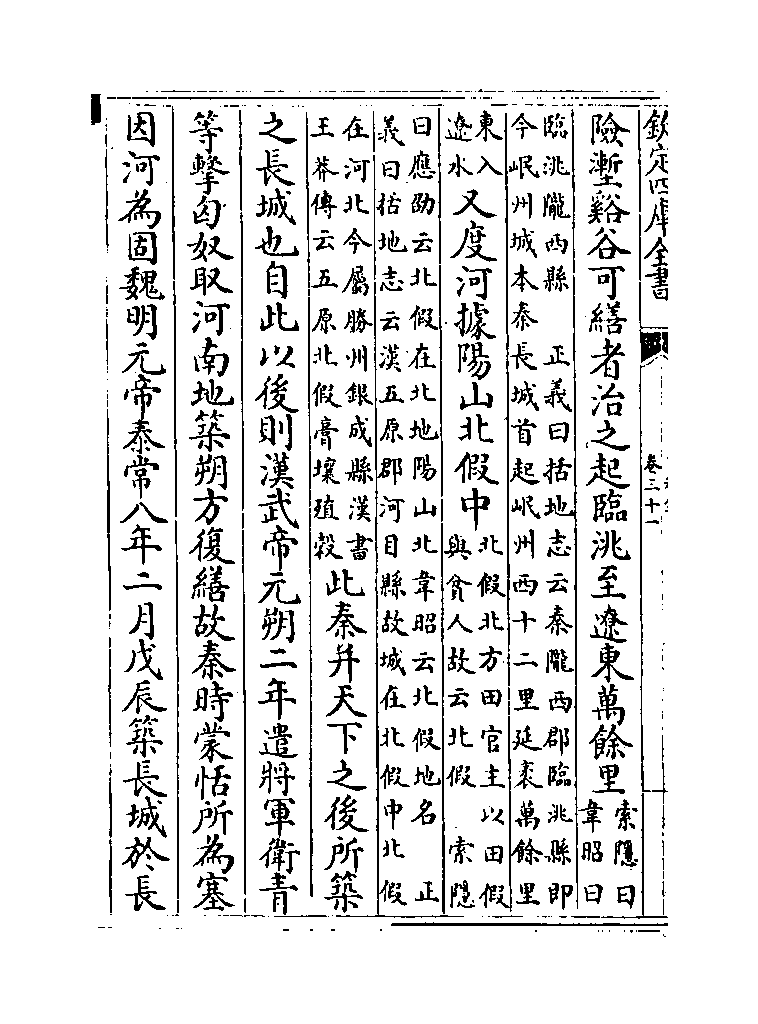 欽定四庫全書
卷三十一
險塹谿谷可繕者治之起臨洮至遼東萬餘里索隱曰韋昭曰
臨洮隴西縣　正義曰括地志云秦隴西郡臨洮縣即
今岷州城本秦長城首起岷州西十二里延袤萬餘里
東入遼水又度河據陽山北假中北假北方田官主以田假與貧人故云北假　索隱
曰應劭云北假在北地陽山北韋昭云北假地名　正
義曰括地志云漢五原郡河目縣故城在北假中北假
在河北今屬勝州銀成縣漢書王莽傳云五原北假膏壤殖穀此秦并天下之後所築
之長城也自此以後則漢武帝元朔二年遣將軍衛青
等擊匈奴取河南地築朔方復繕故秦時蒙恬所為塞
因河為固魏明元帝泰常八年二月戊辰築長城於長